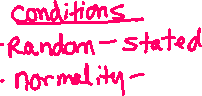 conditions
·Random - stated
·normality -